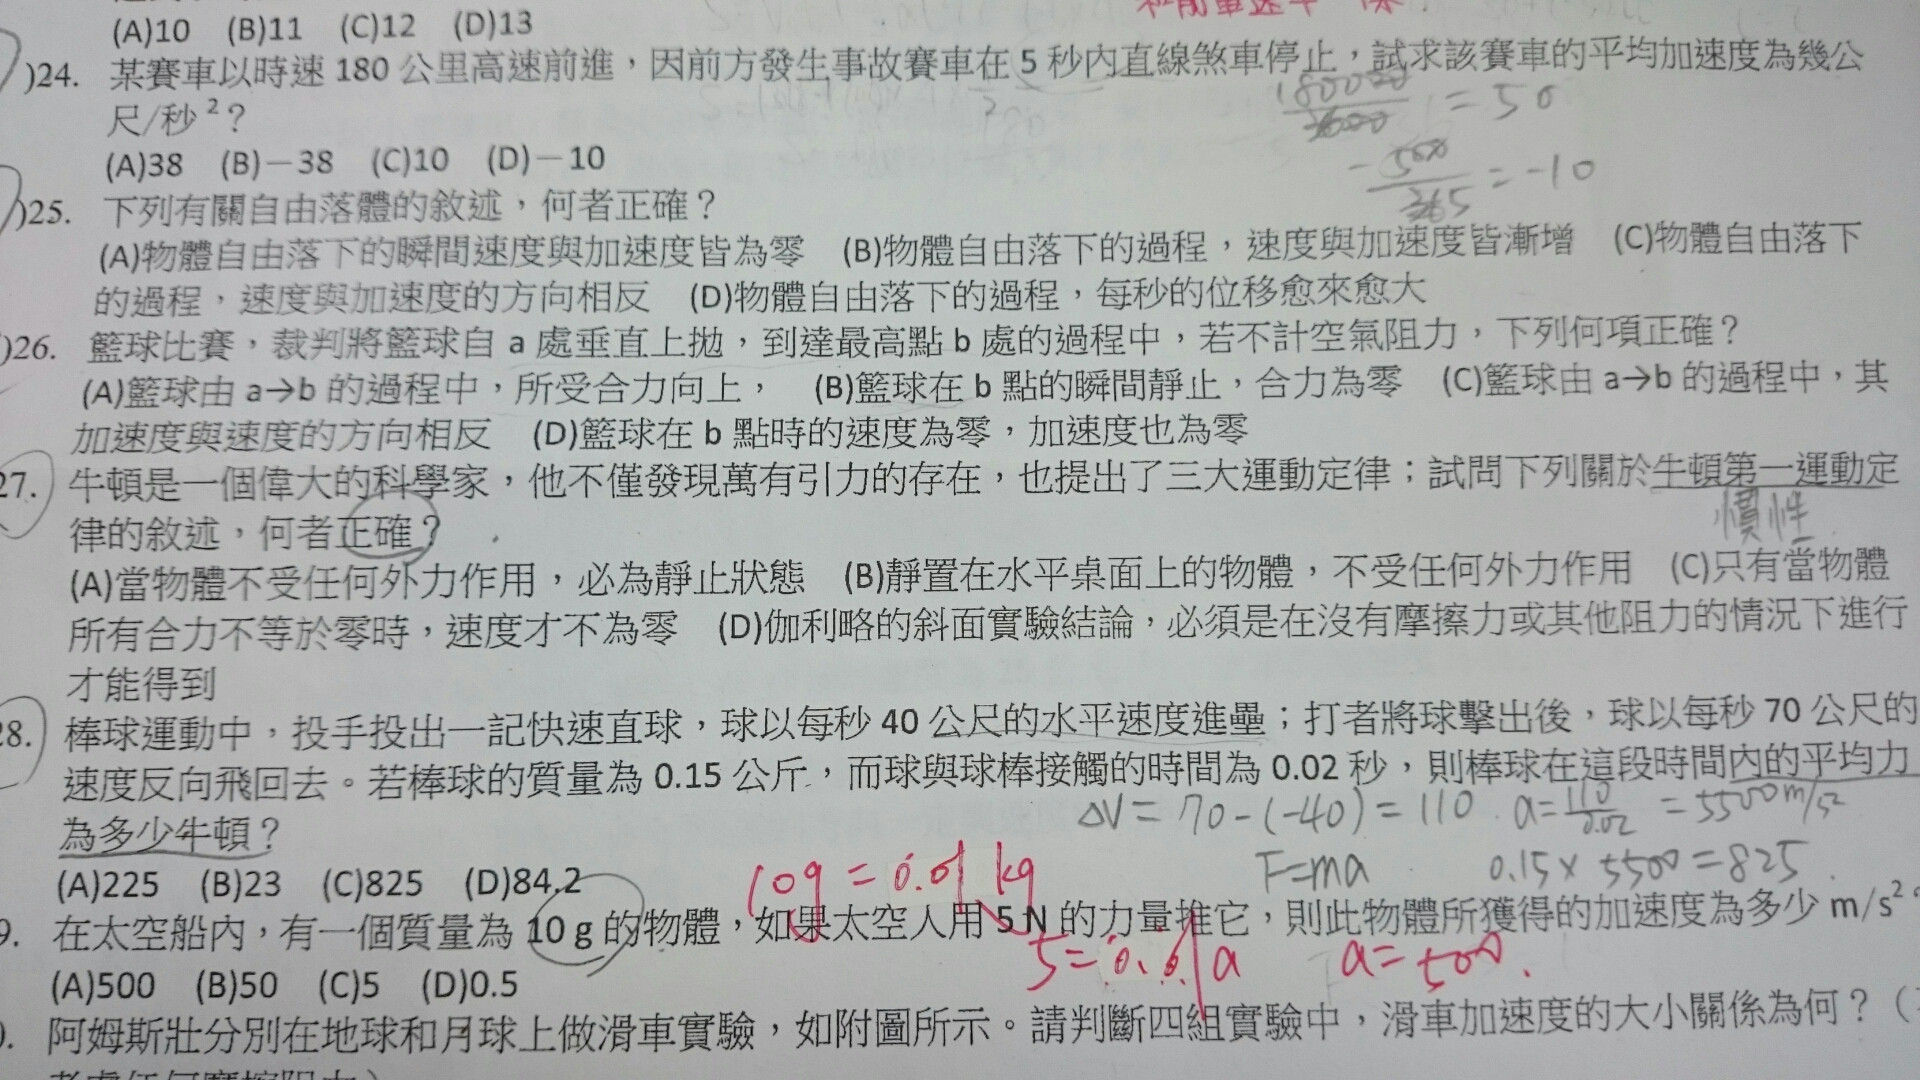 (A)10 (B)11 (C)12 (D)13
)24. 某賽車以時速 180 公里高速前進，因前方發生事故賽車在 5 秒內直線煞車停止，試求該賽車的平均加速度為幾公
尺/秒²？
= 50
(A)38 (B)－38 (C)10 (D)－10
= -10
)25. 下列有關自由落體的敘述，何者正確？
(A)物體自由落下的瞬間速度與加速度皆為零 (B)物體自由落下的過程，速度與加速度皆漸增 (C)物體自由落下
的過程，速度與加速度的方向相反 (D)物體自由落下的過程，每秒的位移愈來愈大
)26. 籃球比賽，裁判將籃球自 a 處垂直上拋，到達最高點 b 處的過程中，若不計空氣阻力，下列何項正確？
(A)籃球由 a→b 的過程中，所受合力向上， (B)籃球在 b 點的瞬間靜止，合力為零 (C)籃球由 a→b 的過程中，其
加速度與速度的方向相反 (D)籃球在 b 點時的速度為零，加速度也為零
27. 牛頓是一個偉大的科學家，他不僅發現萬有引力的存在，也提出了三大運動定律；試問下列關於牛頓第一運動定
律的敘述，何者正確？
慣性
(A)當物體不受任何外力作用，必為靜止狀態 (B)靜置在水平桌面上的物體，不受任何外力作用 (C)只有當物體
所有合力不等於零時，速度才不為零 (D)伽利略的斜面實驗結論，必須是在沒有摩擦力或其他阻力的情況下進行
才能得到
28. 棒球運動中，投手投出一記快速直球，球以每秒 40 公尺的水平速度進壘；打者將球擊出後，球以每秒 70 公尺的
速度反向飛回去。若棒球的質量為 0.15 公斤，而球與球棒接觸的時間為 0.02 秒，則棒球在這段時間內的平均力
為多少牛頓？
ΔV = 70-(-40) = 110 a=110/0.02 = 5500m/s²
(A)225 (B)23 (C)825 (D)84.2
10g = 0.01 kg
F=ma 0.15× 5500 = 825
9. 在太空船內，有一個質量為 10 g 的物體，如果太空人用 5 N 的力量推它，則此物體所獲得的加速度為多少 m/s²
5 = 0.01a a = 500.
(A)500 (B)50 (C)5 (D)0.5
阿姆斯壯分別在地球和月球上做滑車實驗，如附圖所示。請判斷四組實驗中，滑車加速度的大小關係為何？（